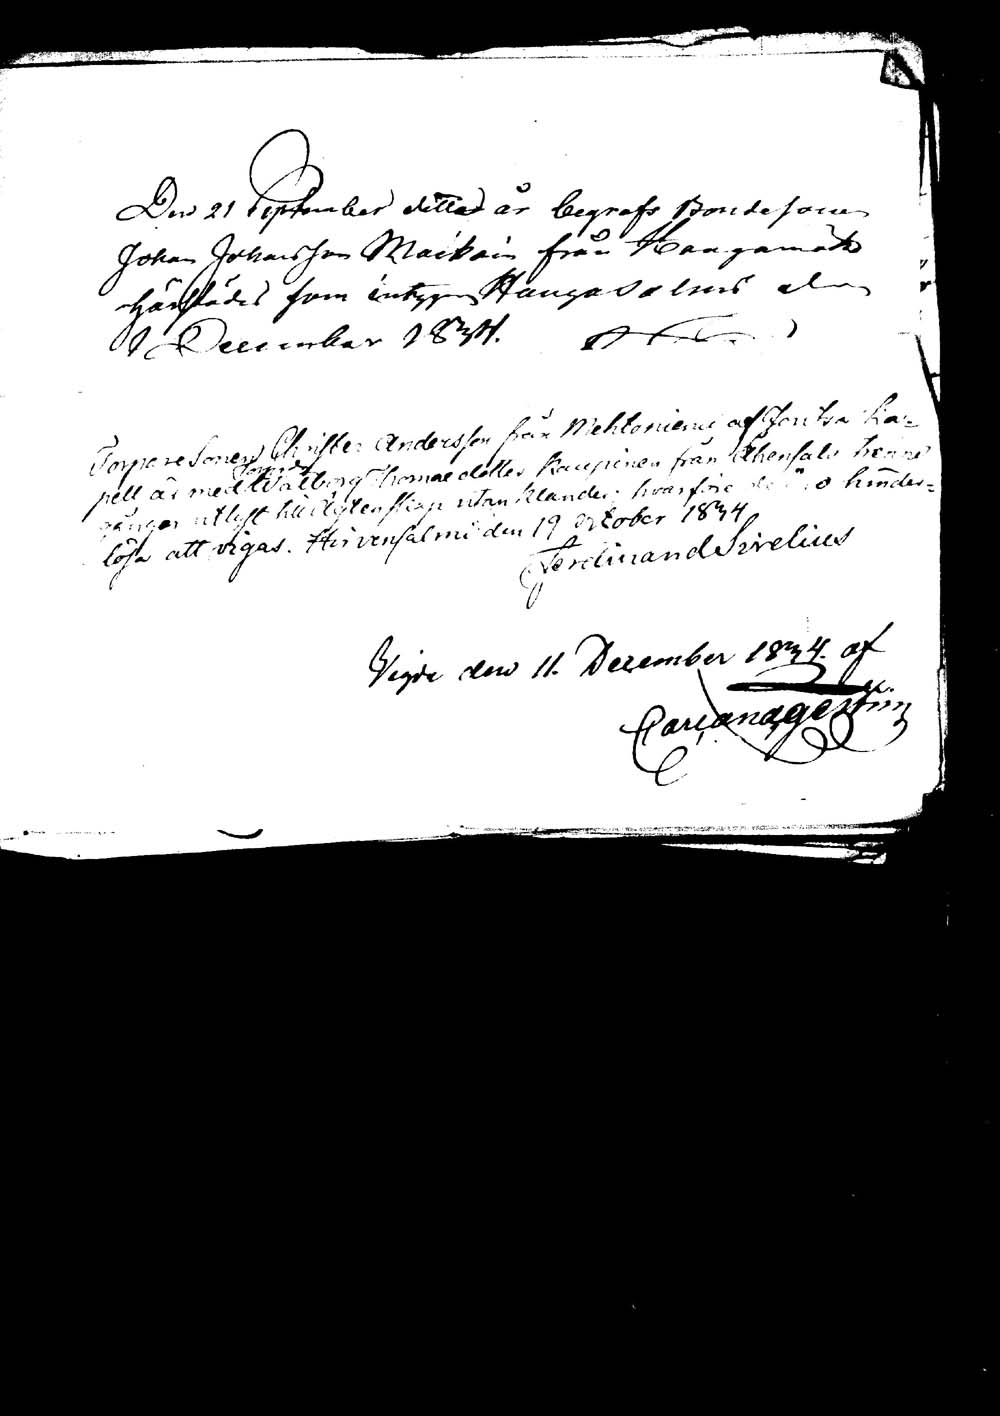 Den 21 September detta år begrafs Bondesonen
Johan Johansson Maikain från Kangamäki
härstädes som intygas Haugasalmi den
9 December 1834.
Torpare Sonen Christer Andersson från Mehtoniemi af Joutsa Ka-
pell är med Torpar Walborg Thomaedotter Kaupinen från Ahensalo trenne
gånger utlyst till ägtenskap utan klander; hvarföre de äro hinder-
lösa att vigas. Hirvensalmi den 19 October 1834
Ferdinand Sirelius
Vigde den 11. December 1834. af